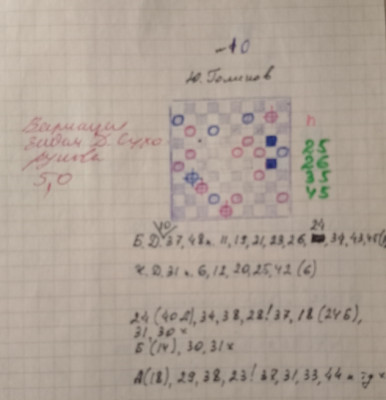 -10
Ю. Голиков
Вариация
задачи Д. Сухо-
рукова
5,0
n
25
26
35
45
40
24
Б. Д. 37, 48 п. 11, 19, 21, 23, 26, 34, 43, 45
Ч. Д. 31 п. 6, 12, 20, 25, 42 (6)
24 (40А), 34, 38, 28! 37, 18 (24Б),
31, 30 ×
Б (14), 30, 31 ×
А (18), 29, 38, 23! 37, 31, 33, 44 ×